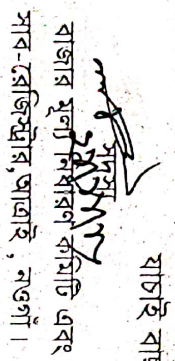 যাচাই
সদস্য
বাজার মূল্য নির্ধারণ কমিটি এবং
সাব-রেজিস্ট্রার,আত্রাই, নওগাঁ।